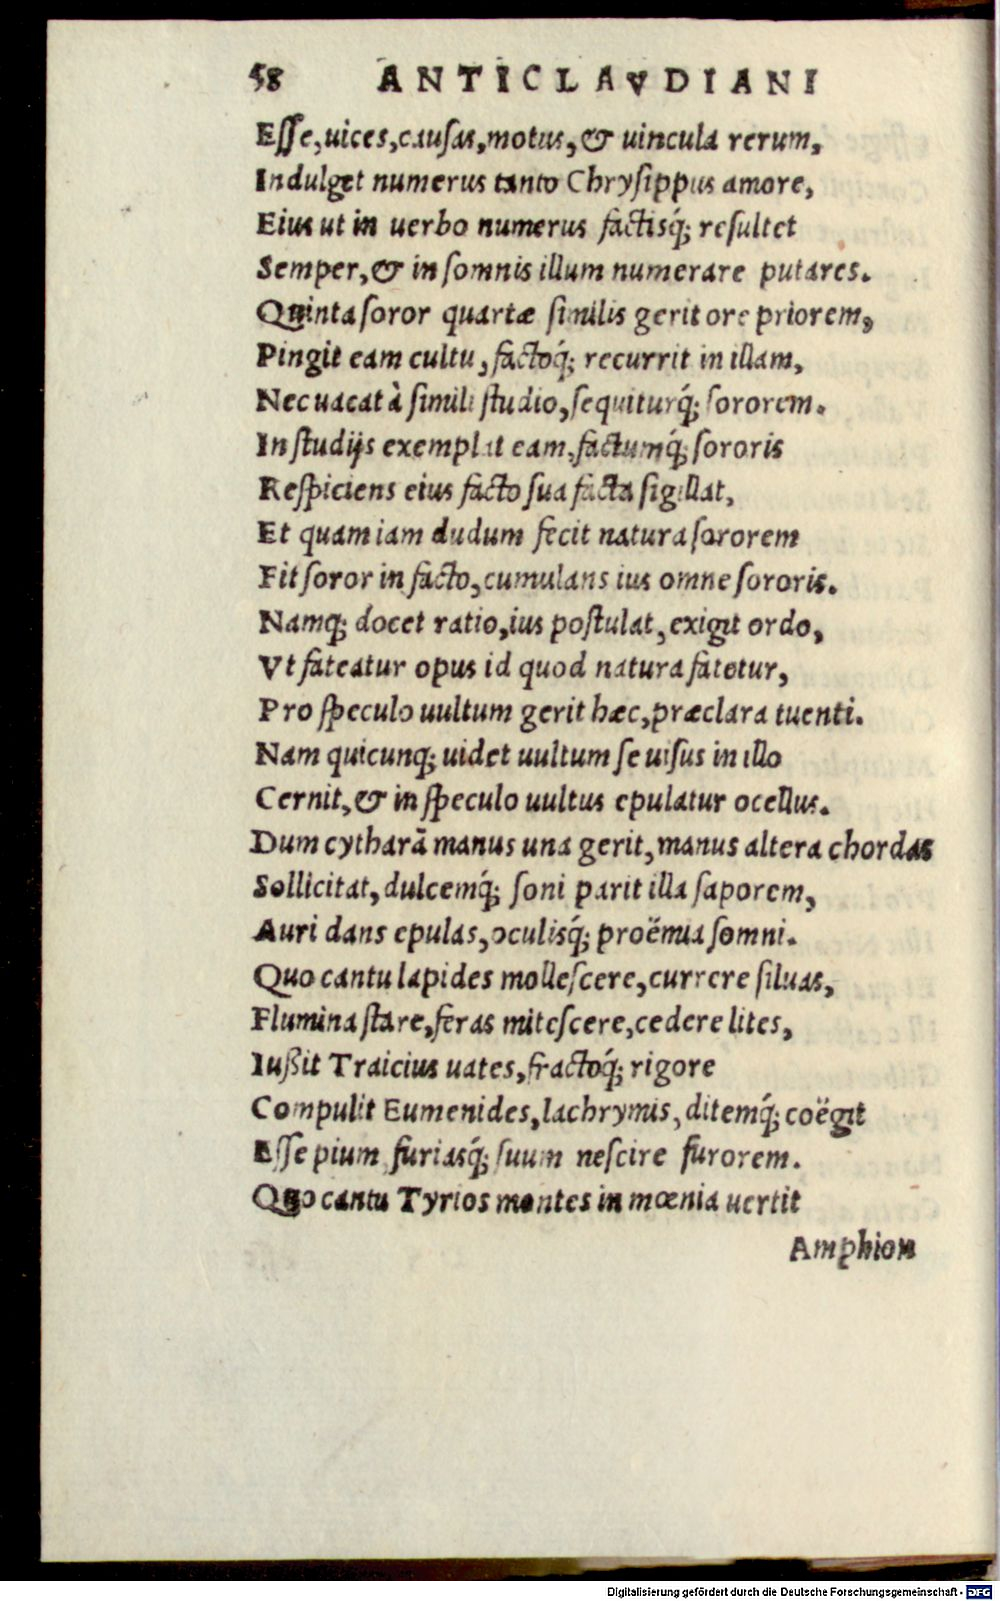 58 ANTICLAVDIANI
Eſſe, uices, cauſas, motus, & uincula rerum,
Indulget numerus tanto Chryſippus amore,
Eius ut in uerbo numerus factisq́; reſultet
Semper, & in ſomnis illum numerare putares.
Quinta ſoror quartæ ſimilis gerit ore priorem,
Pingit eam cultu, factoq́; recurrit in illam,
Nec uacat à ſimili ſtudio, ſequiturq́; ſororem.
In ſtudijs exemplat eam, factumq́; ſororis
Reſpiciens eius facto ſua facta ſigillat,
Et quam iam dudum fecit natura ſororem
Fit ſoror in facto, cumulans ius omne ſororis.
Namq; docet ratio, ius poſtulat, exigit ordo,
Vt fateatur opus id quod natura fatetur,
Pro ſpeculo uultum gerit hæc, præclara tuenti.
Nam quicunq; uidet uultum ſe uiſus in illo
Cernit, & in ſpeculo uultus epulatur ocellus.
Dum cytharā manus una gerit, manus altera chordas
Sollicitat, dulcemq́; ſoni parit illa ſaporem,
Auri dans epulas, oculisq́; proëmia ſomni.
Quo cantu lapides molleſcere, currere ſiluas,
Flumina ſtare, feras miteſcere, cedere lites,
Iußit Traicius uates, fractoq́; rigore
Compulit Eumenides, lachrymis, ditemq́; coëgit
Eſſe pium furiasq́; ſuum neſcire furorem.
Quo cantu Tyrios montes in mœnia uertit
Amphion
Digitalisierung gefördert durch die Deutsche Forschungsgemeinschaft - DFG